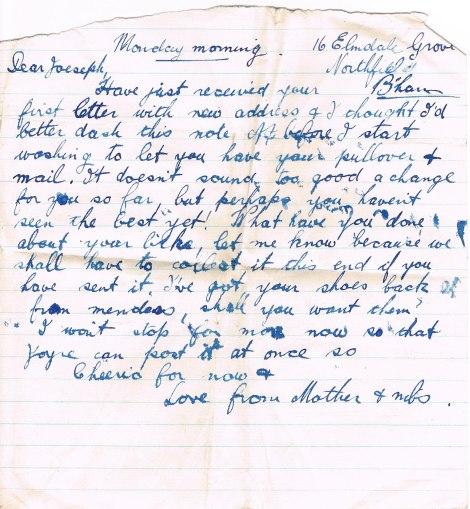 Monday morning. 16 Elmdale Grove
Northfield
Dear Joeseph, B'ham
Have just received your
first letter with new address & I thought I'd
better dash this note off before I start
washing to let you have your pullover &
mail. It doesn't sound too good a change
for you so far, but perhaps you haven't
seen the best yet! What have you done
about your bike, let me know because we
shall have to collect it this end if you
have sent it, I've got your shoes back
from menders, shall you want them?
I won't stop for more now so that
can post it at once so
Cheerio for now &
Love from Mother &